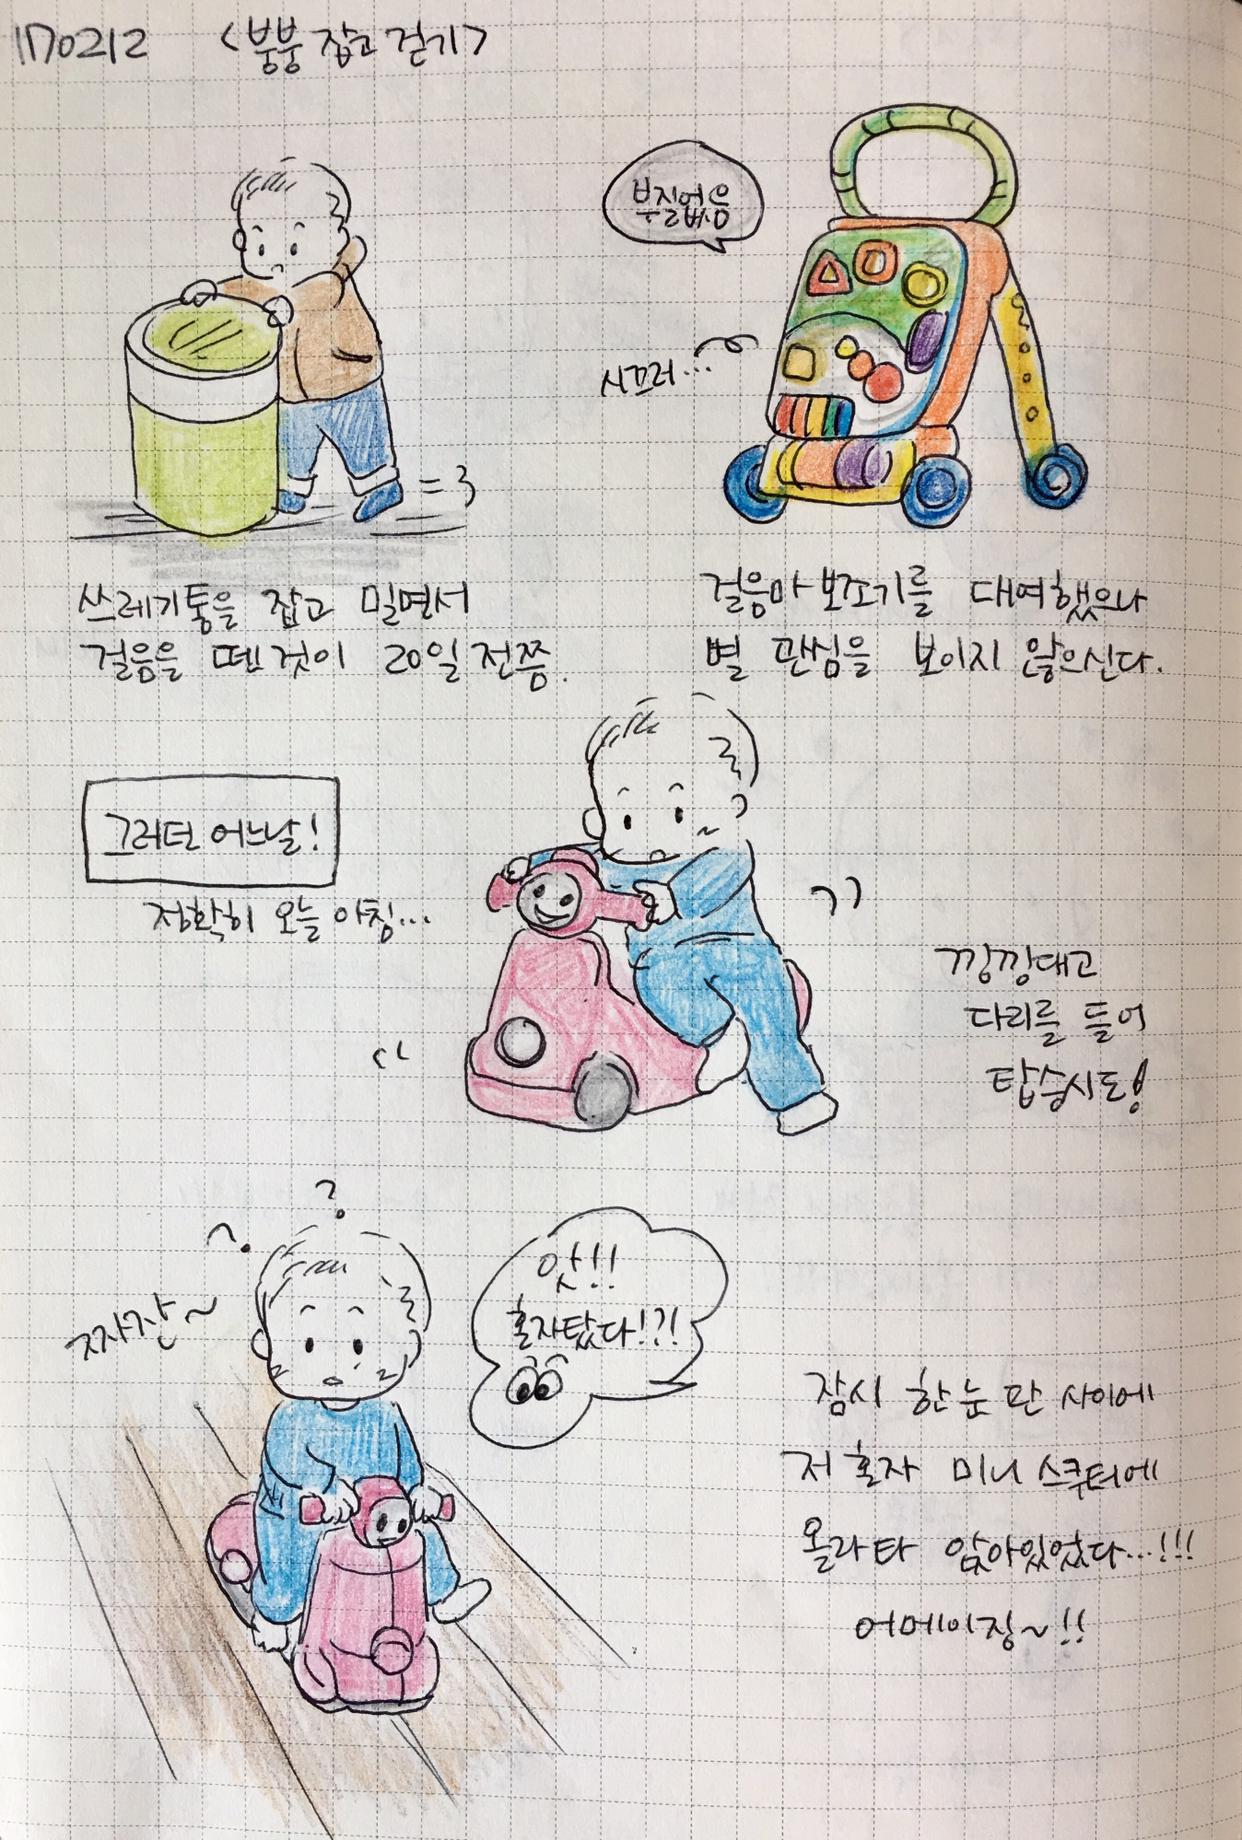 170212 <붕붕 잡고 걷기>
부질없음
시끄러...
쓰레기통을 잡고 밀면서
걸음을 뗀것이 20일 전쯤.
걸음마 보조기를 대여했으나
별 관심을 보이지 않으신다.
그러던 어느날!
정확히 오늘 아침...
낑낑대고
다리를 들어
탑승시도!
?
짜자잔~
앗!!
혼자탔다!?!
잠시 한눈 판 사이에
저 혼자 미니 스쿠터에
올라타 앉아있었다...!!!
어메이징~!!